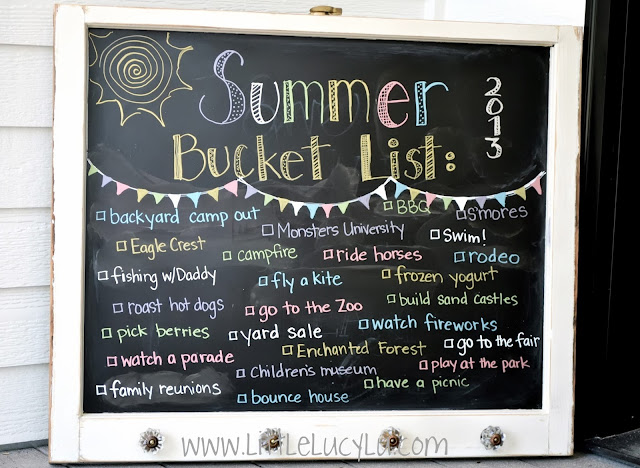 Summer
2013
Bucket List:
backyard camp out
Monsters University
BBQ
s'mores
Eagle Crest
campfire
ride horses
Swim!
rodeo
fishing w/Daddy
fly a kite
frozen yogurt
roast hot dogs
go to the Zoo
build sand castles
pick berries
yard sale
watch fireworks
go to the fair
watch a parade
Enchanted Forest
play at the park
Children's museum
have a picnic
family reunions
bounce house
www.LittleLucyLu.com